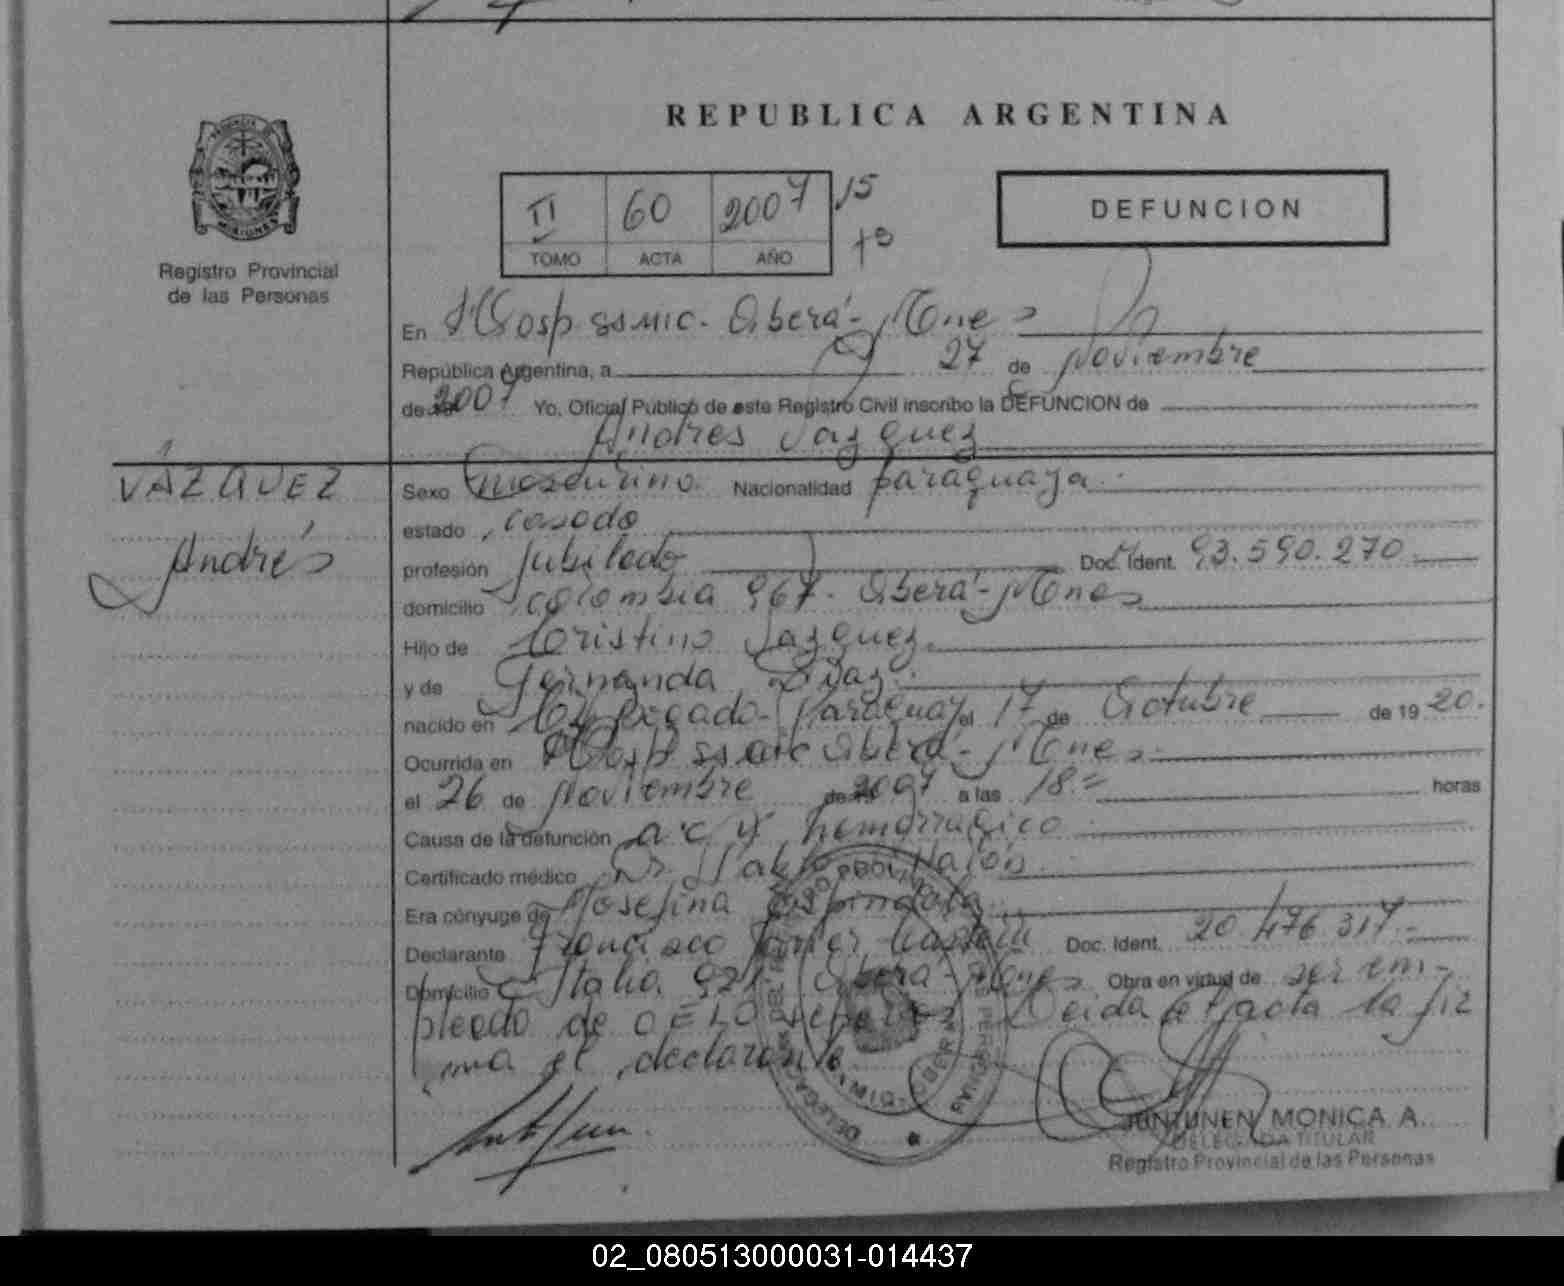 REPUBLICA ARGENTINA
Registro Provincial
de las Personas
II 60 2007 15
TOMO ACTA AÑO
DEFUNCION
En Hosp. SAMIC. Oberá - Mnes
República Argentina, a 27 de Noviembre
de 2007 Yo, Oficial Público de este Registro Civil inscribo la DEFUNCION de
Andres Vazquez
VÁZQUEZ
Andrés
Sexo masculino Nacionalidad paraguaya
estado casado
profesión Jubilado Doc. Ident. 93.590.270
domicilio Colombia 967. Oberá - Mnes
Hijo de Cristino Vazquez
y de Fernanda Diaz
nacido en Paraguay el 17 de Octubre de 1920.
Ocurrida en Hosp SAMIC Oberá - Mnes
el 26 de Noviembre de 2007 a las 18 horas
Causa de la defunción a.c.v. hemorragico
Certificado médico Dr. Pablo
Era cónyuge de Josefina Espindola
Declarante Francisco Javier Doc. Ident. 20.476.317
Domicilio Italia 921 Oberá - Mnes Obra en virtud de ser em-
pleado de Leida el acta la fir
ma el declarante
JUNTUNEN MONICA A.
DELEGADA TITULAR
Registro Provincial de las Personas
02_080513000031-014437